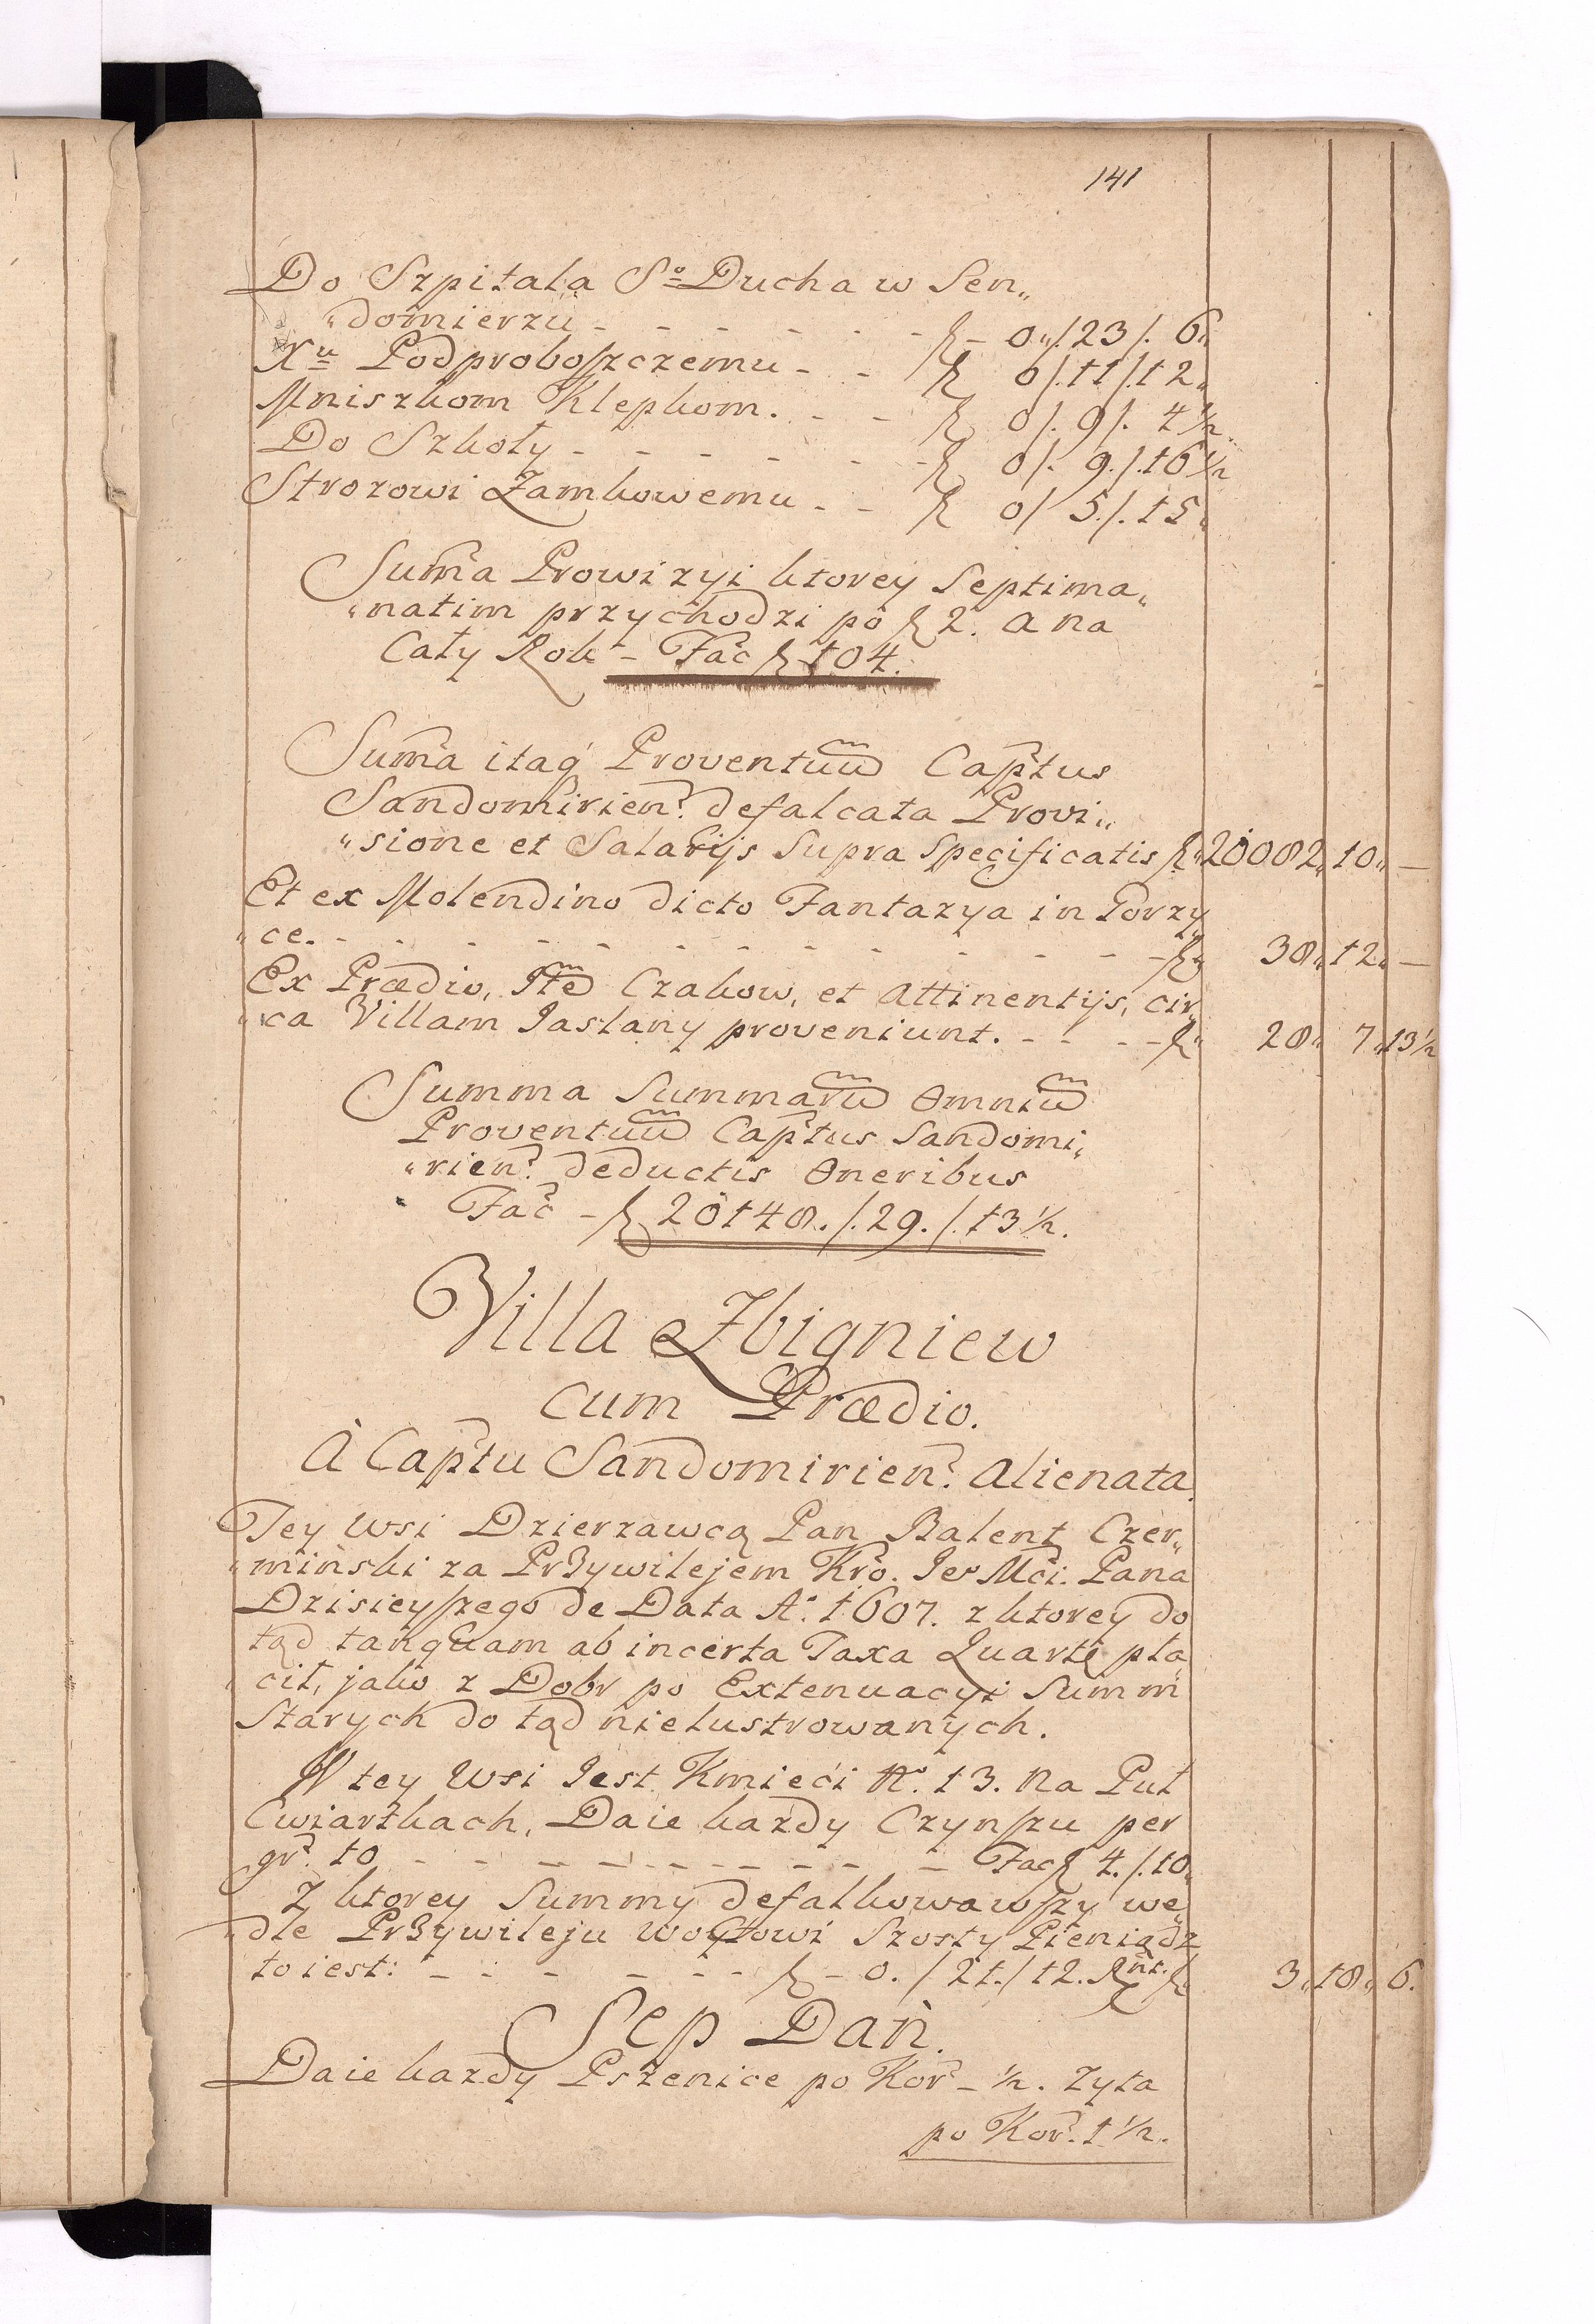 141
Do Szpitala Sº Ducha w Sen„
„domierzu - - - - - - - ƶ - 0„/. 23/. 6„
Xu Podproboszczemu - - ƶ 0/. 11/. 12„
Mniszkom Klepkom. - - ƶ 0/. 9/. 4½
Do Szkoły - - - - - - - ƶ 0/. 9./. 16½
Strozowi Zamkowemu - - ƶ 0/ 5./. 15„
Suma Prowizyi ktorey Septima„
„natim przychodzi po ƶ 2. a na
Cały Rok - Fac ƶ 104.
Suma itaq Proventuu Captus
Sandomirien. defalcata Provi„
„sione et Salarijs Supra Specificatis ƶ„ 20082„ 10„ —
Et ex Molendino dicto Fantazya in Gorzy„
„ce. - - - - - - - - - - - - ƶ„ 38„ 12„ —
Ex Prædio, Ite Czakow, et Attinentijs, cir„
„ca Villam Jaslany proveniunt. - - - - ƶ„ 28„ 7„ 13½
Summa Summaru Omniu
Proventuu Captus Sandomi„
„rien. deductis Oneribus
Fac - ƶ 20148./. 29./. 13½.
Villa Zbigniew
cum Prædio.
A Captu Sandomirien. Alienata.
Tey Wsi Dzierzawcą Pan Balent Czer„
„minski za Przywilejem Kro. Jeº Mci. Pana
Dzisieyszego de Data Aº. 1607. z ktorey do
tąd tanquam ab incerta Taxa Quartę pła
cił, jako z Dobr po Extenuacyi Summ
Starych do tąd nielustrowanych.
W tey Wsi Jest Kmieci Nº. 13. Na Puł
Cwiartkach, Daie kazdy Czynszu per
gr. 10 - - - - - - - - - - Fac ƶ 4./. 10„
Z ktorey Summy defalkowawszy we„
„dle Przywileju woytowi Szosty Pieniądz
to iest: - - - - - - ƶ - 0./ 21./ 12. Rnt. ƶ 3„ 18„ 6.
Sep Dan.
Daie kazdy Pszenice po Kor - ½. Zyta
po Kor. 1½.